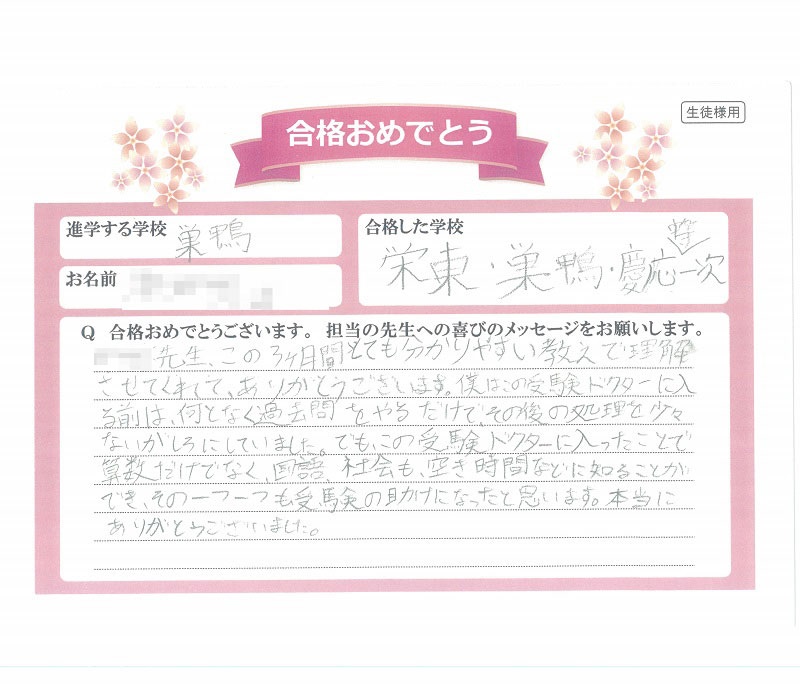 生徒様用
合格おめでとう
進学する学校 巣鴨
お名前
合格した学校
栄東・巣鴨・慶応一次
Q 合格おめでとうございます。 担当の先生への喜びのメッセージをお願いします。
先生、この3ヶ月間とても分かりやすい教えで理解
させてくれて、ありがとうございます。僕はこの受験ドクターに入
る前は、何となく過去問をやるだけで、その後の処理を少々
ないがしろにしていました。でも、この受験ドクターに入ったことで
算数だけでなく、国語、社会も、空き時間などに知ることが
でき、その一つ一つも受験の助けになったと思います。本当に
ありがとうございました。